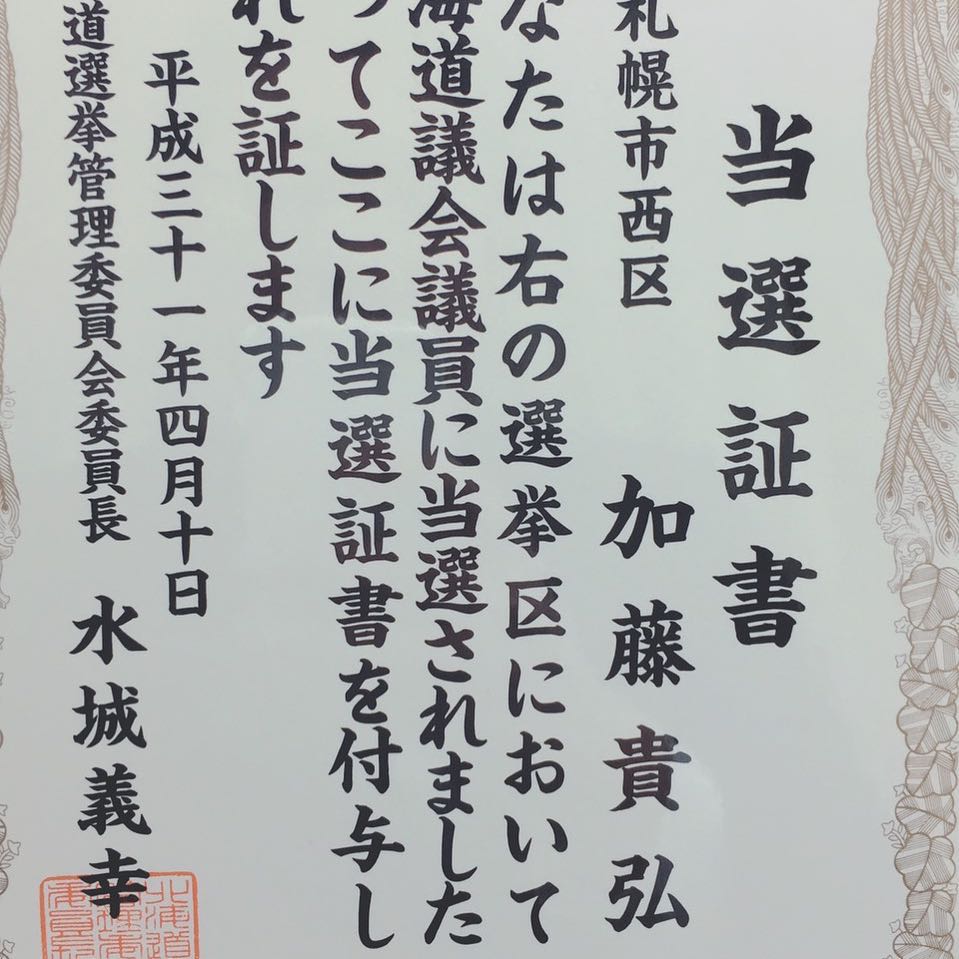 当選証書
札幌市西区
加藤貴弘
なたは右の選挙区において
海道議会議員に当選されました
ってここに当選証書を付与し
れを証します
平成三十一年四月十日
道選挙管理委員会委員長 水城義幸